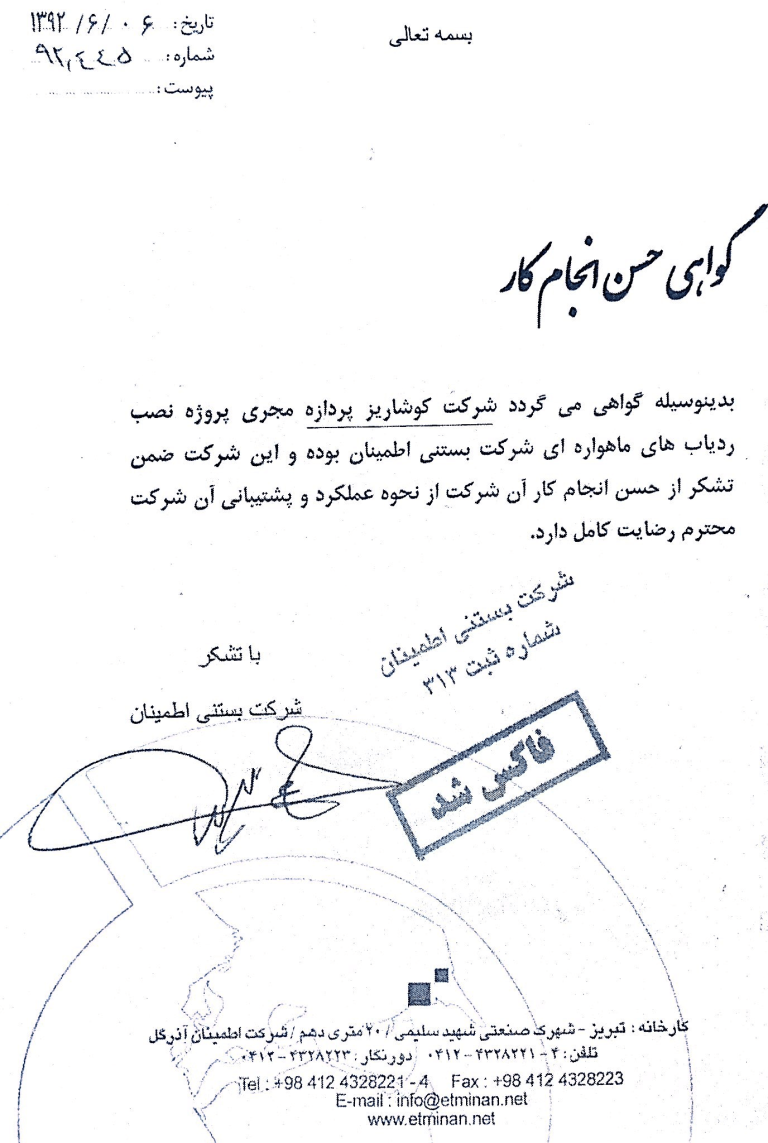 بسمه تعالی
تاریخ: ۱۳۹۲/۶/۰۶
شماره: ۹۲,۴۴۵
پیوست:
گواهی حسن انجام کار
بدینوسیله گواهی می گردد شرکت کوشاریز پردازه مجری پروژه نصب
ردیاب های ماهواره ای شرکت بستنی اطمینان بوده و این شرکت ضمن
تشکر از حسن انجام کار آن شرکت از نحوه عملکرد و پشتیبانی آن شرکت
محترم رضایت کامل دارد.
شرکت بستنی اطمینان
شماره ثبت ۳۱۳
با تشکر
شرکت بستنی اطمینان
فاکس شد
کارخانه : تبریز - شهرک صنعتی شهید سلیمی / ۲۰ متری دهم / شرکت اطمینان آذرگل
تلفن : ۴ - ۴۳۲۸۲۲۱ - ۰۴۱۲ دورنگار : ۴۳۲۸۲۲۳ - ۰۴۱۲
Tel : +98 412 4328221 - 4 Fax : +98 412 4328223
E-mail : info@etminan.net
www.etminan.net